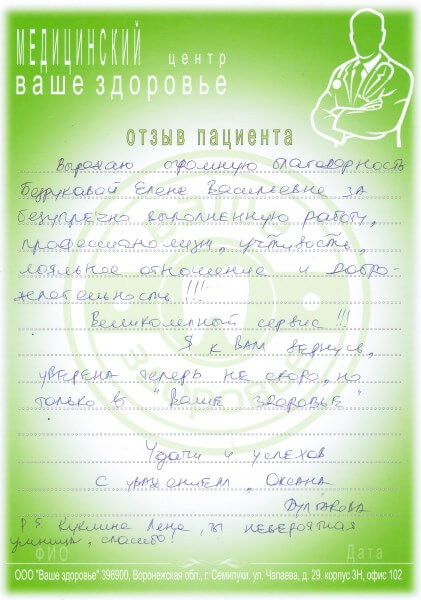 МЕДИЦИНСКИЙ центр
ваше здоровье
отзыв пациента
Выражаю огромную благодарность
Безруковой Елене Васильевне за
безупречно выполненную работу,
профессионализм, учтивость,
лояльное отношение и добро-
желательность !!!
Великолепный сервис !!!
Я к ВАМ вернусь,
уверена теперь не скоро, но
только в "ВАШЕ ЗДОРОВЬЕ"
Удачи и успехов
С уважением, Оксана
Булгакова
P.S. Куклина Лена, ты невероятная
умница, спасибо
ФИО Дата
ООО "Ваше здоровье" 396900, Воронежская обл., г. Семилуки, ул. Чапаева, д. 29. корпус 3Н, офис 102